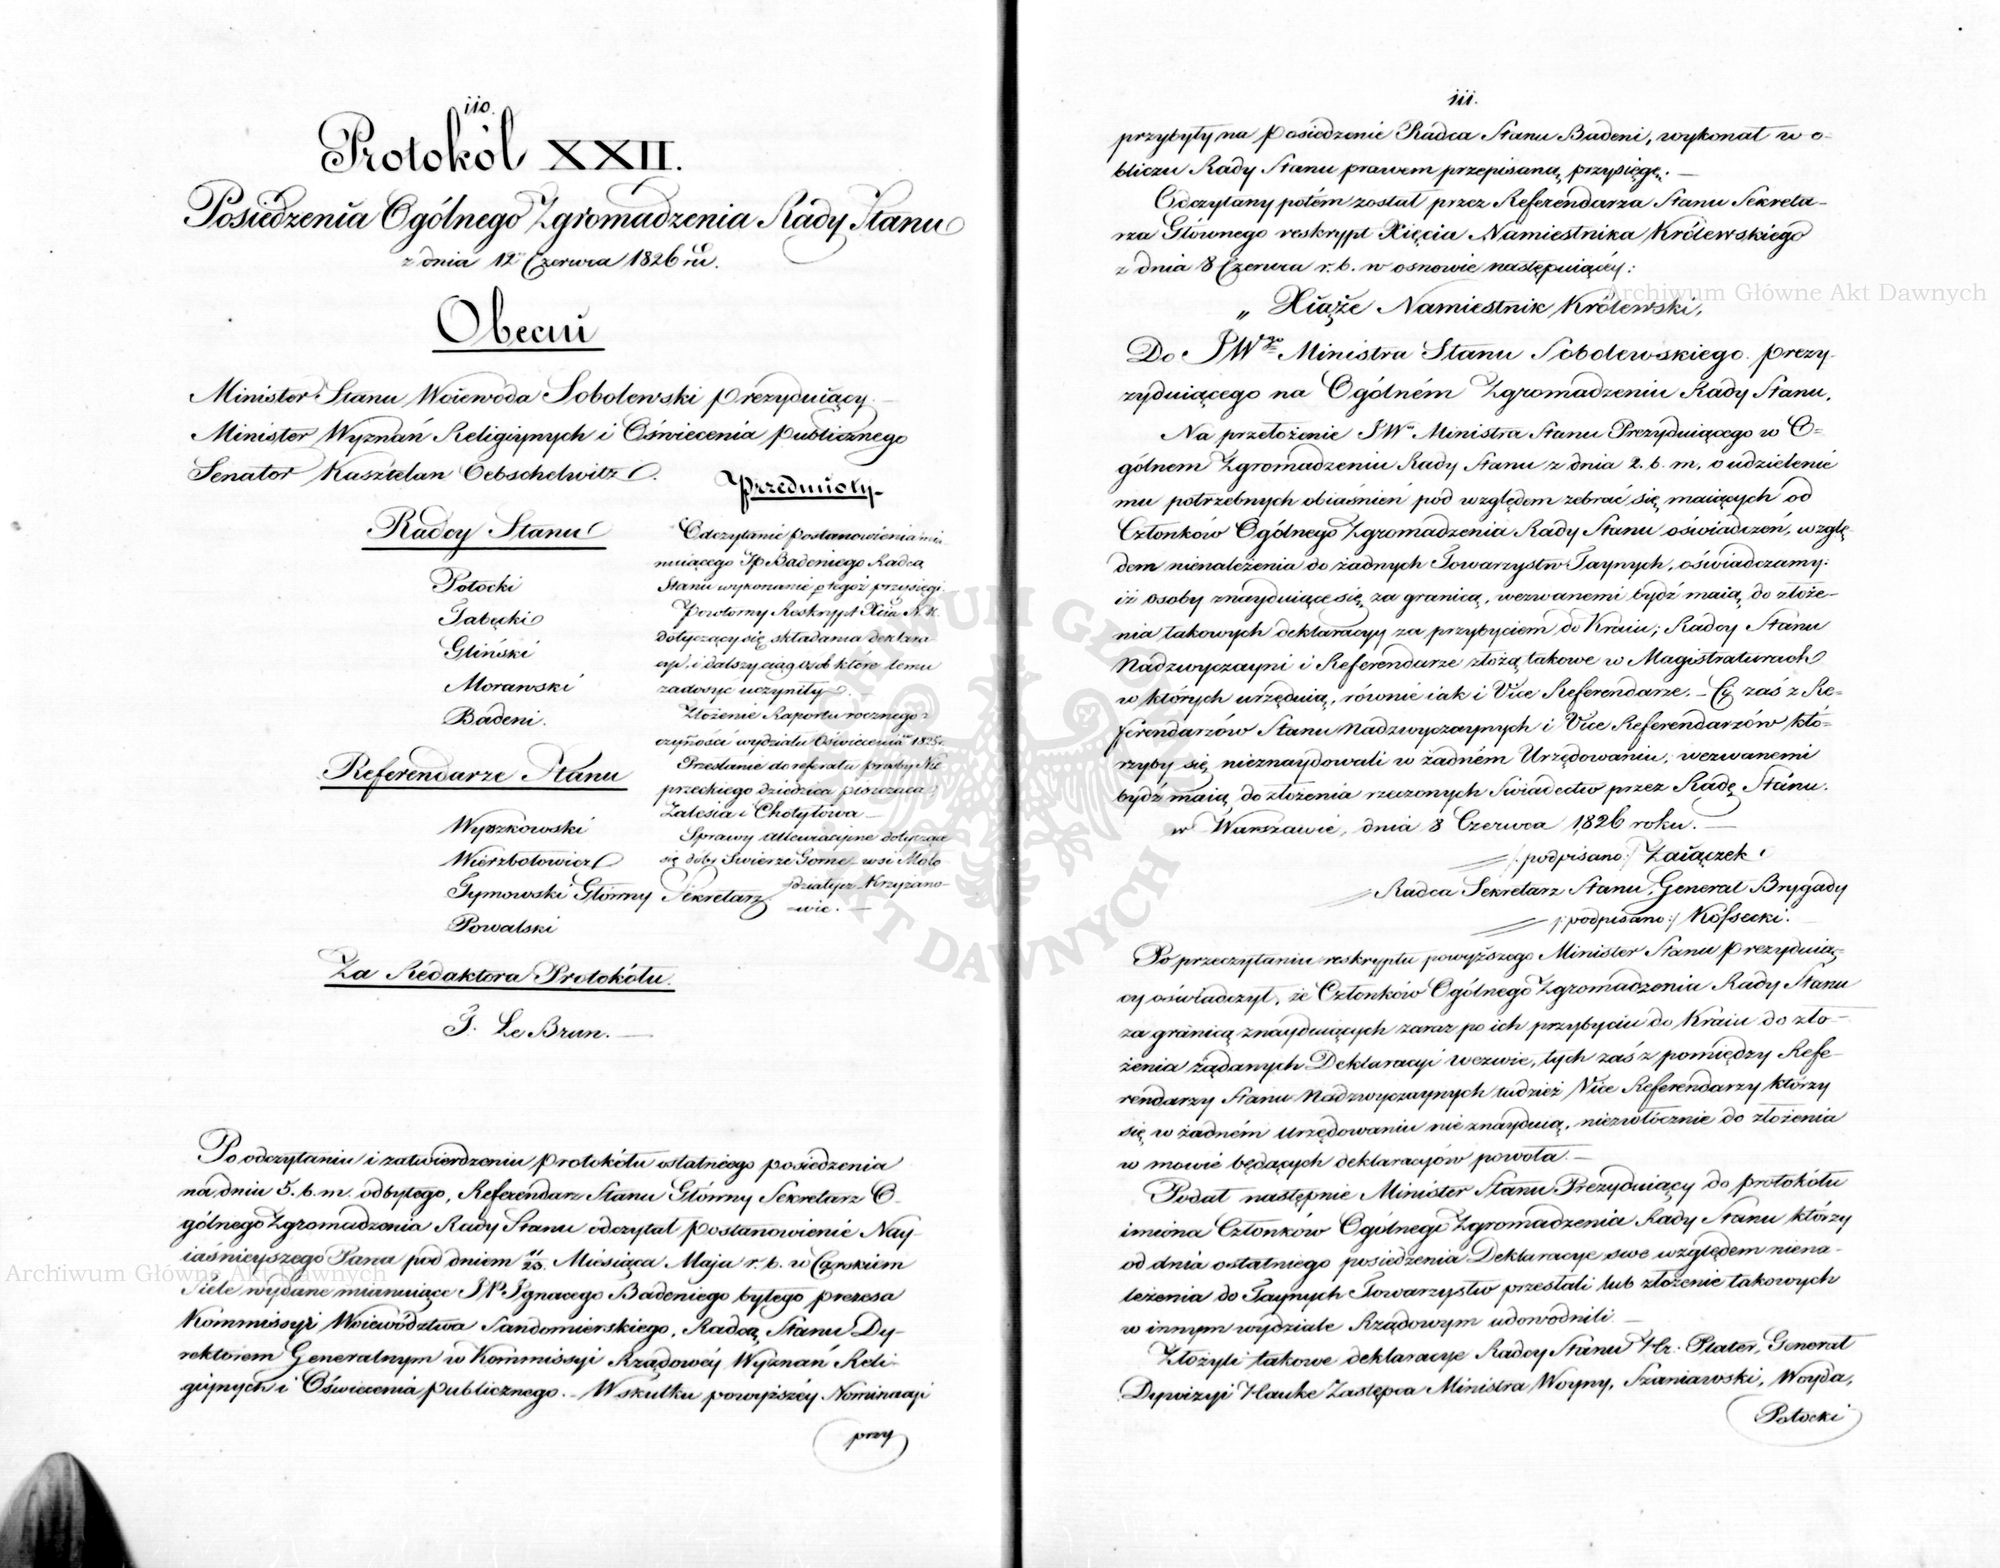 110.
Protokół XXII.
Posiedzenia Ogólnego Zgromadzenia Rady Stanu
z dnia 12 Czerwca 1826 ru.
Obecni
Minister Stanu Woiewoda Sobolewski prezyduiący.
Minister Wyznań Religiynych i Oświecenia publicznego
Senator Kasztelan Oebschelwitz.
Radcy Stanu
Potocki
Tabęcki
Gliński
Morawski
Badeni.
Referendarze Stanu
Wyszkowski
Wierzbołowicz
Tymowski Główny Sekretarz
Powalski
Za Redaktora Protokółu.
J. Le Brun.
Przedmioty
Odczytanie postanowienia mia-
nuiącego JP Badeniego Radcą
Stanu wykonanie p tegoż przysięgi
Powtórny Reskrypt Xcia N. K.
dotyczący się składania deklara
cyi, i dalszy ciąg osób które temu
zadosyć uczyniły.
Złożenie Raportu rocznego z
czynności wydziału Oświecenia 1825 r.
Przesłanie do referatu prośby Nie
przeckiego dziedzica piszczaca
Zalesia i Chotyłowa
Sprawy allewiacyjne dotyczące
się dóbr Swierze Górne wsi Moło
działycz Krzyżano-
wic.
Po odczytaniu i zatwierdzeniu protokółu ostatniego posiedzenia
na dniu 5. b. m. odbytego, Referendarz Stanu Główny Sekretarz O-
gólnego Zgromadzenia Rady Stanu odczytał postanowienie Nay-
iaśnieyszego Pana pod dniem 11/23. Miesiąca Maja r. b. w Carskiem
Siele wydane mianuiące JP Ignacego Badeniego byłego prezesa
Kommissyi Woiewództwa Sandomierskiego, Radcą Stanu Dy-
rektorem Generalnym w Kommissyi Rządowey Wyznań Reli-
giynych i Oświecenia publicznego. – W skutku powyższey Nominacyi
przy
111.
przybyły na posiedzenie Radca Stanu Badeni, wykonał w o-
bliczu Rady Stanu prawem przepisaną przysięgę.
Odczytany potém został przez Referendarza Stanu Sekreta-
rza Głównego reskrypt Xięcia Namiestnika Królewskiego
z dnia 8 Czerwca r. b. w osnowie następuiącéy:
„ Xiąże Namiestnik Królewski,
Do JWgo Ministra Stanu Sobolewskiego prezy-
zyduiącego na Ogólném Zgromadzeniu Rady Stanu.
Na przełożenie JW Ministra Stanu Prezyduiącego w O-
gólnem Zgromadzeniu Rady Stanu z dnia 2. b. m. o udzielenie
mu potrzebnych obiaśnień pod względem zebrać się maiących od
Członków Ogólnego Zgromadzenia Rady Stanu oświadczeń, wzglę-
dem nienależenia do żadnych Towarzystw Taynych, oświadczamy:
iż osoby znayduiące się za granicą, wezwanemi bydź maią do złoże-
nia takowych deklaracyy za przybyciem do Kraiu; Radcy Stanu
Nadzwyczayni i Referendarze złożą takowe w Magistraturach
w których urzęduią, równie iak i Vice Referendarze. – Cy zaś z Re-
ferendarzów Stanu Nadzwyczaynych i Vice Referendarzów któ-
rzyby się nieznaydowali w żadném Urzędowaniu, wezwanemi
bydź maią do złożenia rzeczonych świadectw przez Radę Stanu.
w Warszawie, dnia 8 Czerwca 1826 roku.
/: podpisano:/ Zaiączek
Radca Sekretarz Stanu, Generał Brygady
/: podpisano:/ Kossecki.
Po przeczytaniu reskryptu powyższego Minister Stanu prezyduią-
cy oświadczył, że Członków Ogólnego Zgromadzenia Rady Stanu
za granicą znayduiących zaraz po ich przybyciu do Kraiu do zło-
żenia żądanych Deklaracyi wezwie, tych zaś z pomiędzy Refe-
rendarzy Stanu Nadzwyczaynych tudzież Vice Referendarzy którzy
się w żadném urzędowaniu nie znayduią, niezwłócznie do złożenia
w mowie będących deklaracyów powoła.
Podał następnie Minister Stanu Prezyduiący do protokółu
imiona Członków Ogólnego Zgromadzenia Rady Stanu którzy
od dnia ostatniego posiedzenia Deklaracye swe względem niena-
leżenia do Taynych Towarzystw przesłali lub złożenie takowych
w innym wydziale Rządowym udowodnili.
Złożyli takowe deklaracye Radcy Stanu Hr. Plater, Generał
Dywizyi Hauke Zastępca Ministra Woyny, Szaniawski, Woyda,
Potocki
Archiwum Główne Akt Dawnych
Archiwum Główne Akt Dawnych
ARCHIWUM GŁÓWNE AKT DAWNYCH